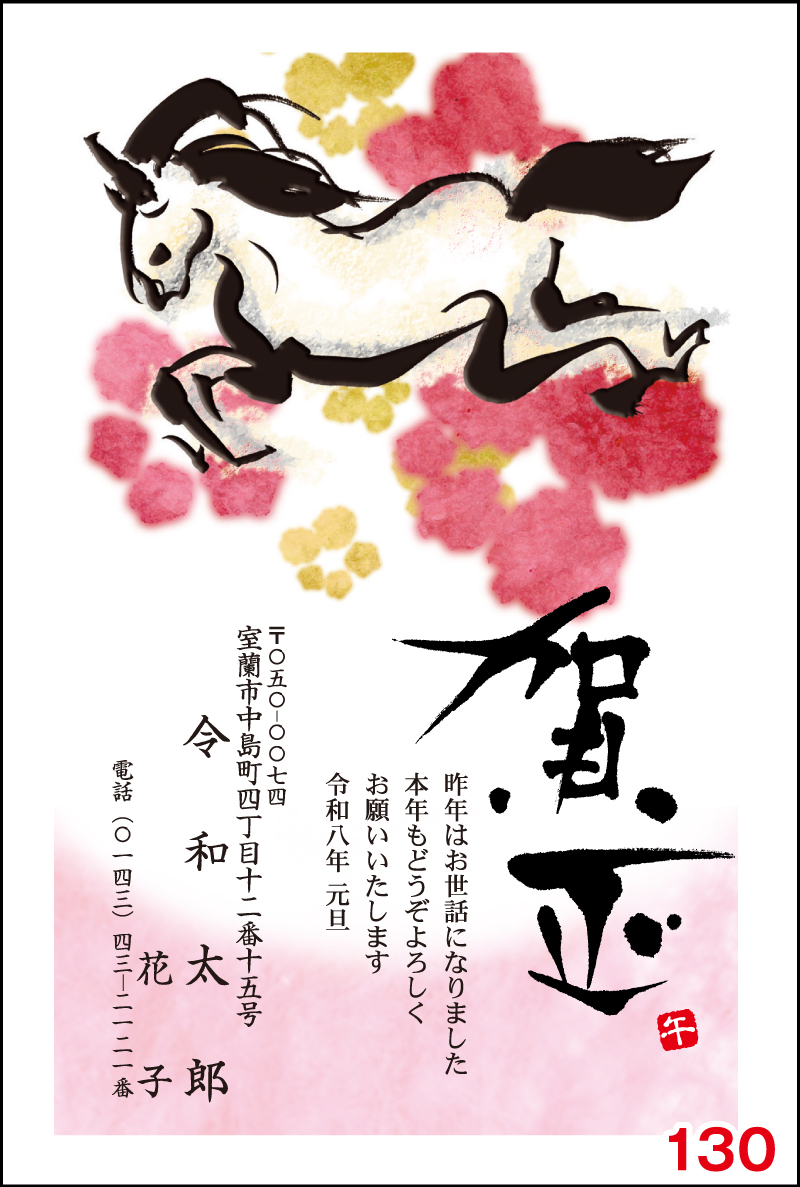 賀正
午
昨年はお世話になりました
本年もどうぞよろしく
お願いいたします
令和八年 元旦
〒〇五〇―〇〇七四
室蘭市中島町四丁目十二番十五号
令和太郎
花子
電話(〇一四三)四三―二一二一番
130